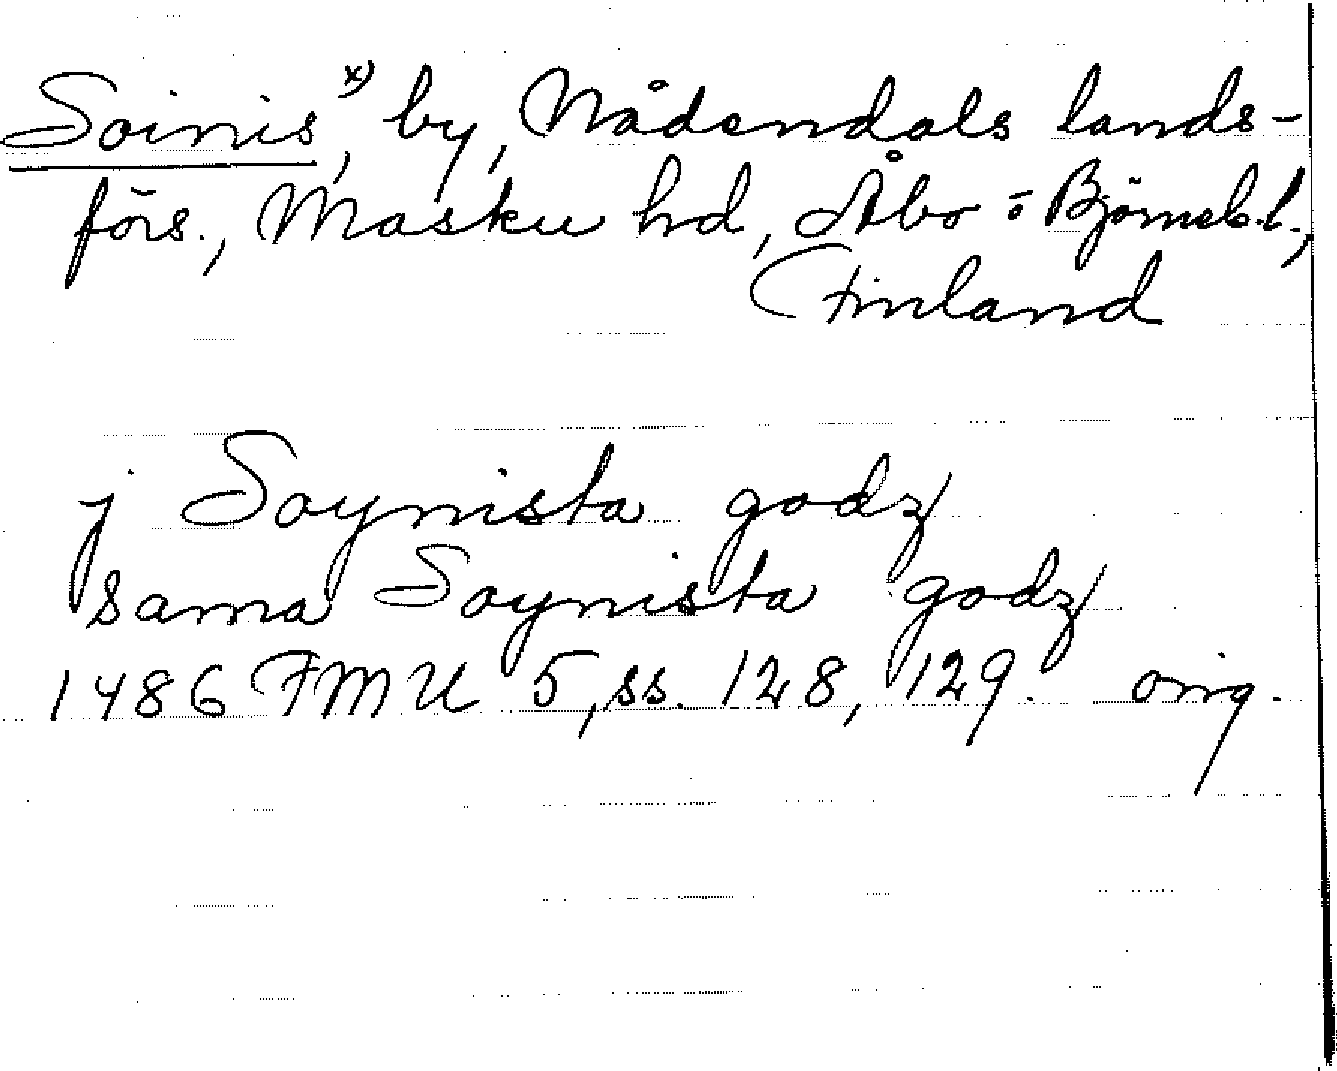 Soinis x), by, Nådendals lands-
förs., Masku hd, Åbo o Björneb.l.,
Finland
j Soynista godz
sama Soynista godz
1486 FMU 5, ss. 128, 129. orig.